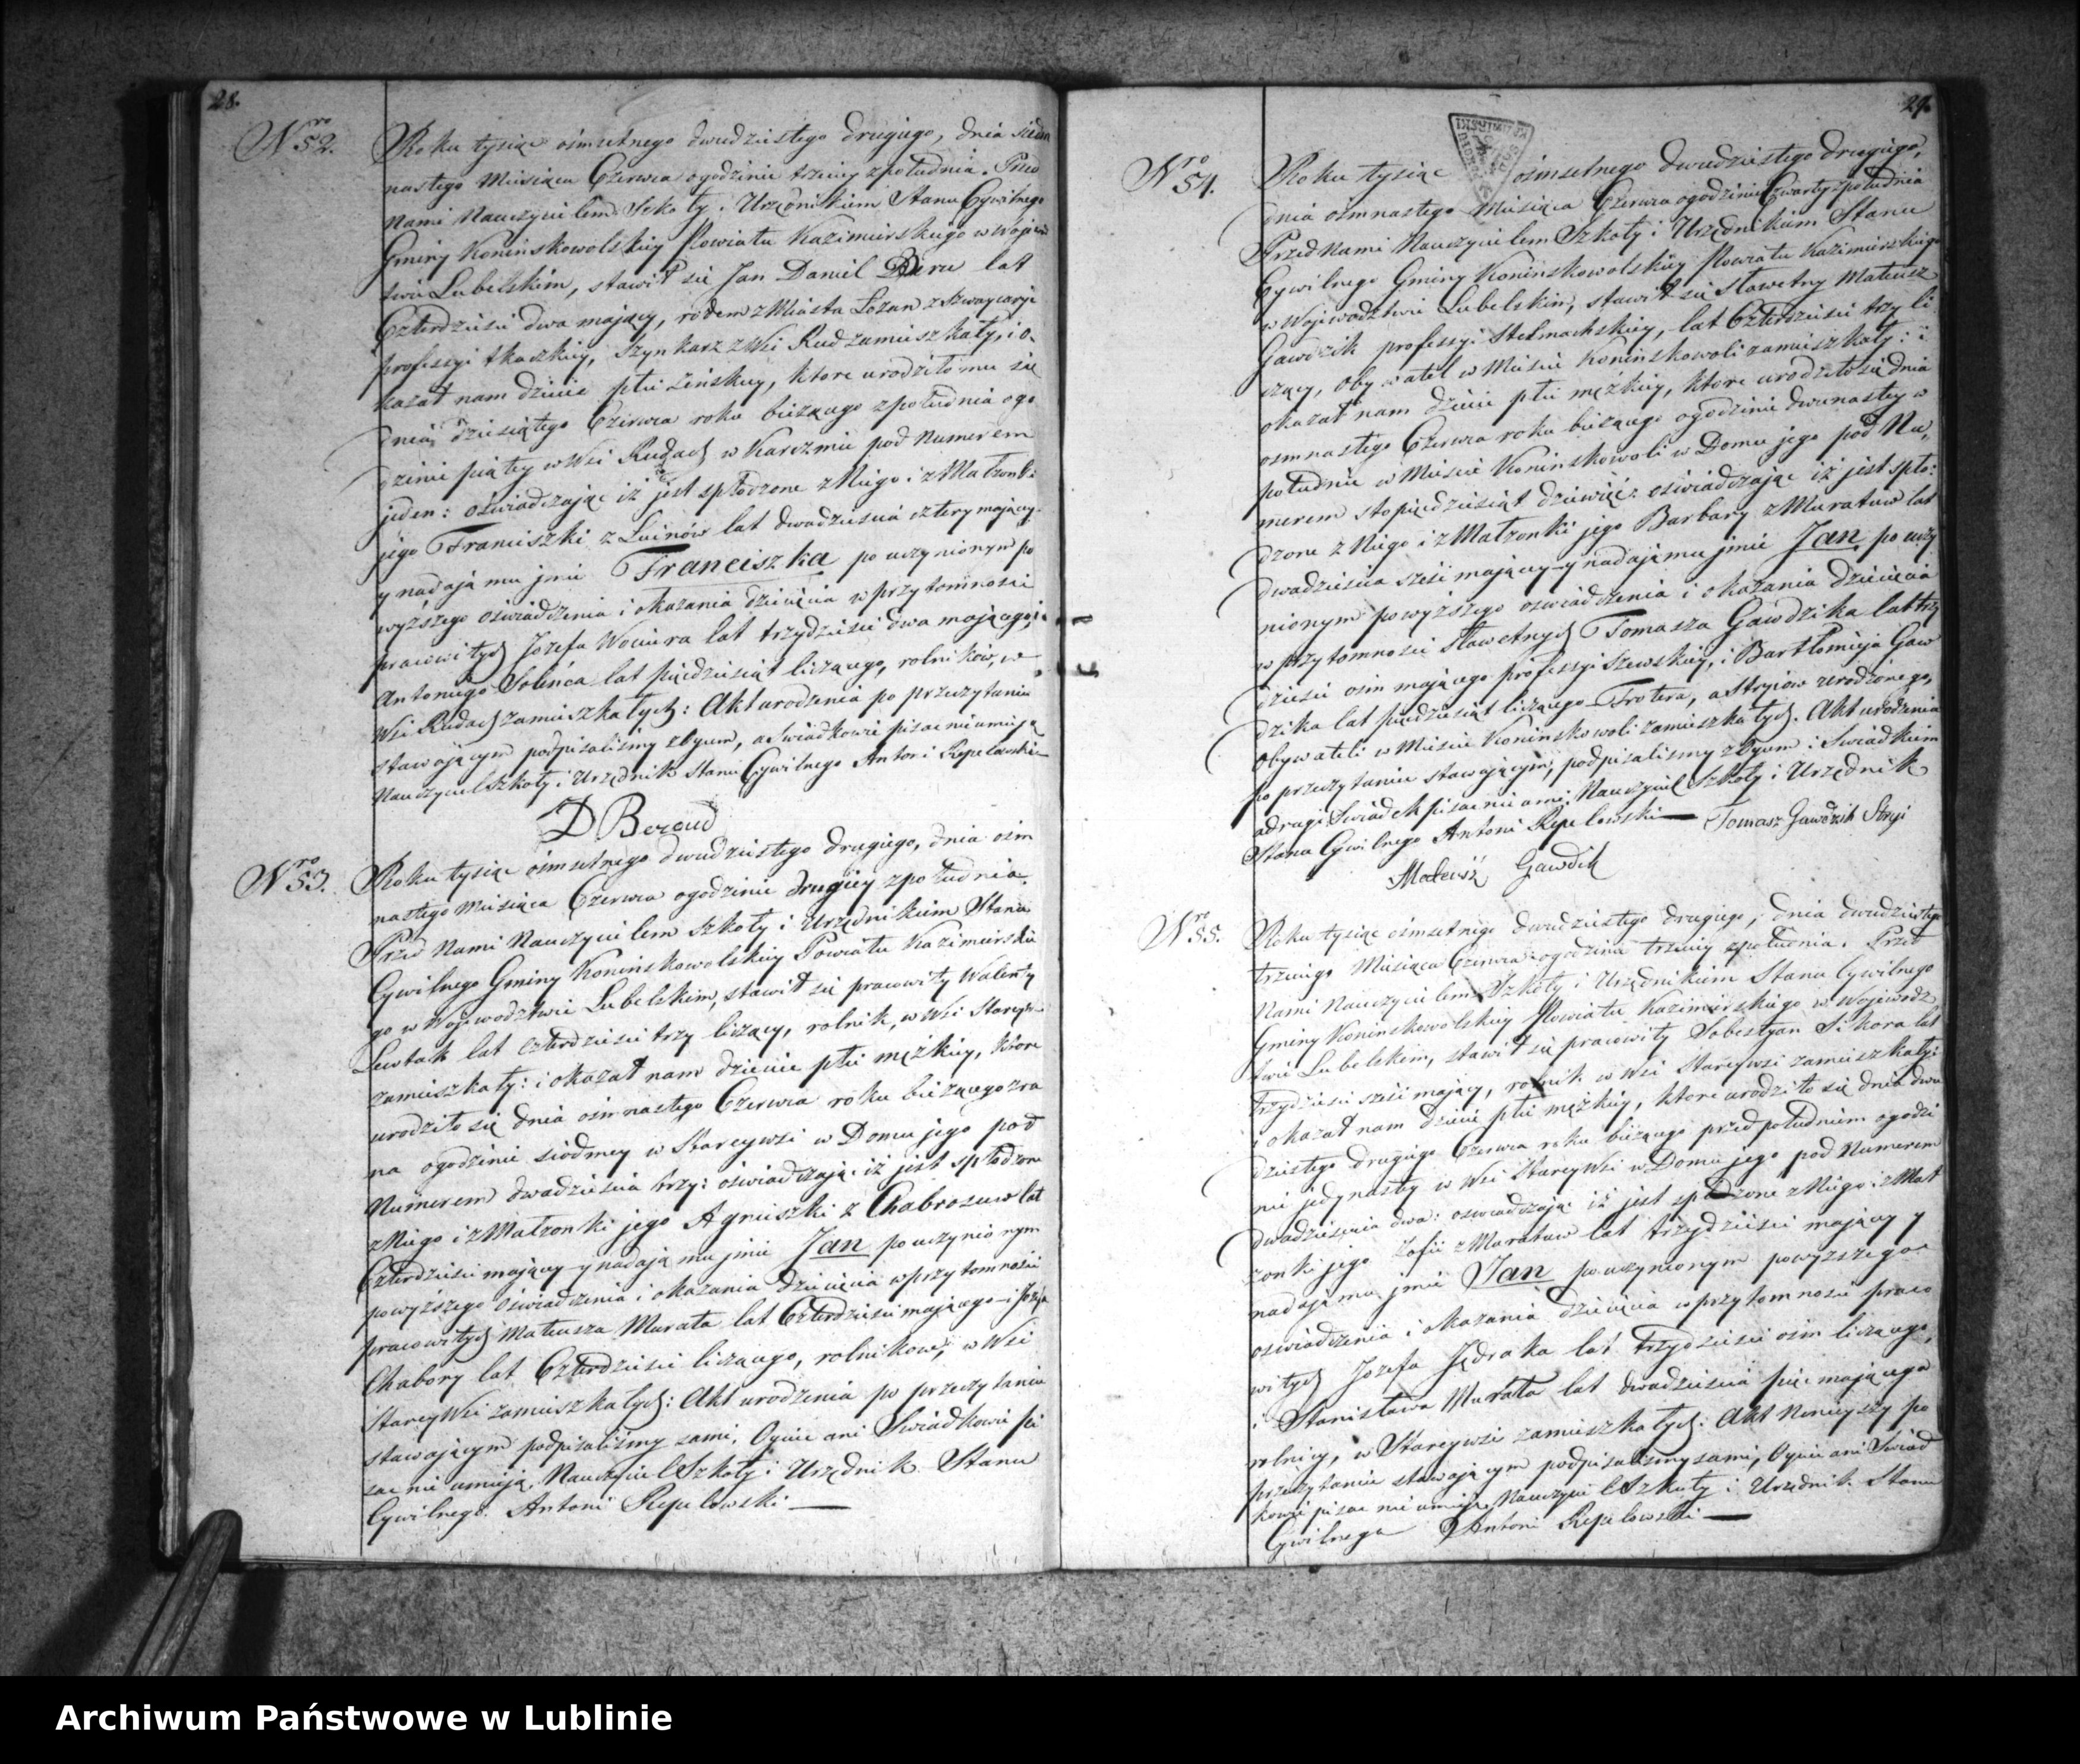 28.
Nro 52.
Roku tysiąc ośmsetnego dwudziestego drugiego, dnia siedm
nastego Miesiąca Czerwca ogodzinie trzeciey zpołudnia. Przed
Nami Nauczycielem Szkoły i Urzędnikiem Stanu Cywilnego
Gminy Konińskowolskiey Powiatu Kazimierskiego w Wojewodz
twie Lubelskim, stawił się Jan Daniel Beru lat
Czterdzieści dwa mający, rodem z Miasta Lozan z Szwaycaryi
professyi tkackiey, Szynkarz z Wsi Rud zamieszkały, i o-
kazał nam dziecie płci żeńskiey, ktore urodziło mu się
dnia dziesiątego Czerwca roku bieżącego zpołudnia ogo
dzinie piątey w Wsi Rudach w Karczmie pod Numerem
jeden: oświadczając iż jest spłodzone z Niego i z Małżonki
jego Franciszki z Lucinów lat dwadzieścia cztery mającey
y nadaje mu jmie Franciszka po uczynionym po
wyższego oświadczenia i okazania dziecięcia w przytomności
pracowitych Jozefa Wociura lat trzydzieści dwa mającego, i
Antoniego Solińca lat pięćdziesiąt liczącego, rolników, w
Wsi Rudach zamieszkałych: Akt urodzenia po przeczytaniu
stawającym podpisaliśmy zOycem, a Świadkowie pisać nieumieją
Nauczyciel Szkoły i Urzędnik Stanu Cywilnego Antoni Repelewski
D Beroud
Nro 53.
Roku tysiąc ośmsetnego dwudziestego drugiego, dnia ośm
nastego Miesiąca Czerwca ogodzinie drugiey zpołudnia.
Przed Nami Nauczycielem Szkoły i Urzędnikiem Stanu
Cywilnego Gminy Konińskowolskiey Powiatu Kazimierskie
go w Wojewodztwie Lubelskim, stawił się pracowity Walenty
Lewtak lat czterdzieści trzy liczący, rolnik, w Wsi Stareywsi
zamieszkały: i okazał nam dziecie płci męzkiey, ktore
urodziło się dnia ośmnastego Czerwca roku bieżącego zra
na ogodzinie siódmey w Stareywsi w Domu jego pod
Numerem dwadzieścia trzy: oświadczając iż jest spłodzone
z Niego i z Małżonki jego Agnieszki z Chabrosuw lat
Czterdzieści mającey y nadaje mu jmie Jan po uczynionym
powyższego oświadczenia i okazania dziecięcia w przytomności
pracowitych Mateusza Murata lat Czterdzieści mającego i Jozefa
Chabory lat Czterdzieści liczącego, rolnikow, w Wsi
Starey Wsi zamieszkałych: Akt urodzenia po przeczytaniu
stawającym podpisaliśmy sami, Oyciec ani Świadkowie pi
sać nie umieją. Nauczyciel Szkoły i Urzędnik Stanu
Cywilnego. Antoni Repelewski
29.
Nro 54.
Roku tysiąc ośmsetnego dwudziestego drugiego,
dnia ośmnastego Miesiąca Czerwca ogodzinie Czwartey zpołudnia
Przed Nami Nauczycielem Szkoły i Urzędnikiem Stanu
Cywilnego Gminy Konińskowolskiey Powiatu Kazimierskiego
w Wojewodztwie Lubelskim, stawił się Sławetny Mateusz
Gawdzik professyi Stelmachskiey, lat Czterdzieści trzy li
czący, Obywatel w Mieście Konińskowoli zamieszkały: i
okazał nam dziecie płci męzkiey, ktore urodziło się dnia
osmnastego Czerwca roku bieżącego ogodzinie dwunastey w
południe w Mieście Konińskowoli w Domu jego pod Nu,
merem stopięćdziesiąt dziewięć: oświadczając iż jest spło:
dzone z Niego i z Małżonki jego Barbary z Muratuw lat
dwadzieścia sześć mającey y nadaje mu jmie Jan po uczy
nionym powyższego oświadczenia i okazania dziecięcia
w przytomności sławetnych Tomasza Gawdzika lat trzy
dzieści ośm mającego professyi szewskiey, i Bartłomieja Gaw
dzika lat pięćdziesiąt liczącego Frotera, a Stryiow urodzonego,
Obywateli w Mieście Konińskowoli zamieszkałych. Akt urodzenia
po przeczytaniu stawającym, podpisaliśmy zOycem i Swiadkiem
a drugi Swiadek pisać nie umie. Nauczyciel Szkoły i Urzędnik
Stanu Cywilnego Antoni Repelewski Tomasz Gawdzik Stryi
Mateusz Gawdzik
Nro 55.
Roku tysiąc ośmsetnego dwudziestego drugiego, dnia dwudziestego
trzeciego Miesiąca Czerwca ogodzinie trzeciey zpołudnia. Przed
Nami Nauczycielem Szkoły i Urzędnikiem Stanu Cywilnego
Gminy Konińskowolskiey Powiatu Kazimierskiego w Wojewodz
twie Lubelskim, stawił się pracowity Sobestyan Sikora lat
Trzydzieści sześć mający, rolnik w Wsi Stareywsi zamieszkały:
i okazał nam dziecie płci męzkiey, ktore urodziło się dnia dwu
dziestego drugiego Czerwca roku bieżącego przed południem ogodzi
nie jedynastey w Wsi Starey Wsi w Domu jego pod Numerem
dwadzieścia dwa: oswiadczając iż jest spłodzone z Niego i z Mał
żonki jego Zofii z Muratuw lat trzydzieści mającey y
nadaje mu jmie Jan po uczynionym powyższego
oświadczenia i okazania dziecięcia w przytomności praco
witych Jozefa Jędraka lat trzydzieści ośm liczącego,
i Stanisława Murata lat dwadzieścia pięć mającego
rolnicy, w Stareywsi zamieszkałych. Akt Ninieyszy po
przeczytaniu stawającym podpisaliśmy sami, Oyciec ani Swiad
kowie pisać nie umieją. Nauczyciel Szkoły i Urzędnik Stanu
Cywilnego Antoni Repelewski
Archiwum Państwowe w Lublinie